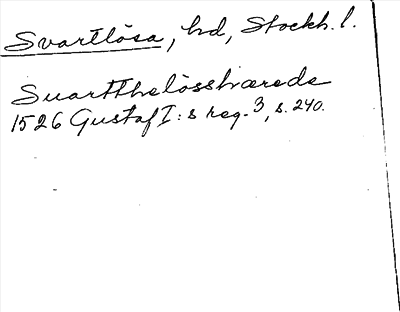 Svartlösa, hd, Stockh. l.
Suartthelösshærede
1526 Gustaf I:s reg. 3, s. 240.